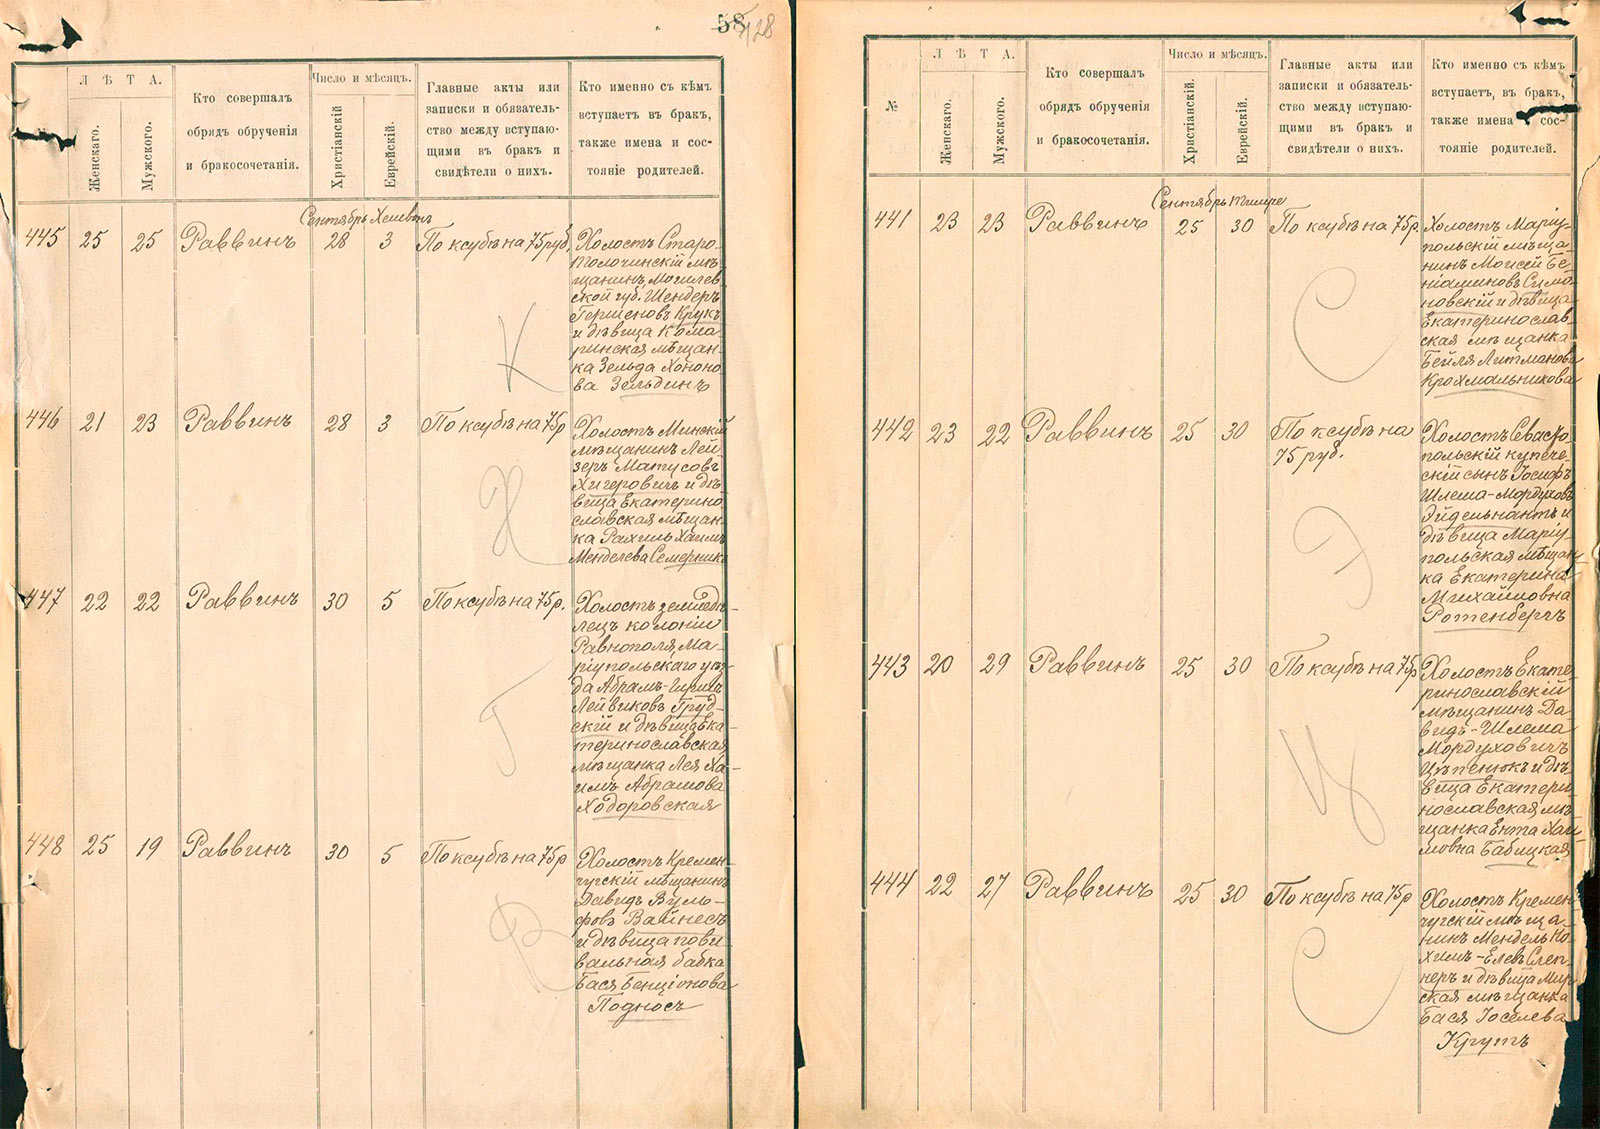 58
128
ЛѢТА.
Женскаго.
Мужского.
Кто совершалъ
обрядъ обрученія
и бракосочетанія.
Число и мѣсяцъ.
Христіанскій
Еврейскій.
Главные акты или
записки и обязатель-
ство между вступаю-
щими въ бракъ и
свидѣтели о нихъ.
Кто именно съ кѣмъ
вступаетъ въ бракъ,
также имена и сос-
тояніе родителей.
Сентябрь Хешвонъ
445 25 25 Раввинъ 28 3 По ксубѣ на 75 руб.
Холостъ Старо-
толочинскій мѣ
щанинъ Могилев-
ской губ. Шендеръ
Гершеновъ Крукъ
и дѣвица Кома
ринская мѣщан-
ка Зельда Хононо
ва Зельдинъ
К
446 21 23 Раввинъ 28 3 По ксубѣ на 75р
Холостъ Минскій
мѣщанинъ Лей-
зеръ Матусовъ
Хигеровичъ и дѣ
вица Екатерино
славская мѣщан-
ка Рахиль Хаимъ
Менделева Семерникъ
Х
447 22 22 Раввинъ 30 5 По ксубѣ на 75р.
Холостъ земледѣ-
лецъ колоніи
Равнополя Ма-
ріупольскаго уѣз-
да Абрамъ-Гиршъ
Лейвиковъ Груд-
скій и дѣвица Ека
теринославская
мѣщанка Лея Ха-
имъ Абрамова
Ходоровская
Г
448 25 19 Раввинъ 30 5 По ксубѣ на 75р
Холостъ Кремен-
чугскій мѣщанинъ
Давидъ Вуль-
фовъ Вайнесъ
и дѣвица пови-
вальная бабка
Бася Бенціонова
Подносъ
В
№
ЛѢТА.
Женскаго.
Мужского.
Кто совершалъ
обрядъ обрученія
и бракосочетанія.
Число и мѣсяцъ.
Христіанскій.
Еврейскій.
Главные акты или
записки и обязатель-
ство между вступаю-
щими въ бракъ и
свидѣтели о нихъ.
Кто именно съ кѣмъ
вступаетъ, въ бракъ,
также имена и сос-
тояніе родителей.
Сентябрь Тишре
441 23 23 Раввинъ 25 30 По ксубѣ на 75р.
Холостъ Маріу-
польскій мѣща
нинъ Моисей Бе-
ніаминовъ Симо
новскій и дѣвица
Екатеринослав-
ская мѣщанка
Бейля Литманова
Крохмальникова
С
442 23 22 Раввинъ 25 30 По ксубѣ на
75 руб.
Холостъ Севасто
польскій купече-
скій сынъ Іосифъ
Шлема-Мордуховъ
Эйдельнантъ и
дѣвица Маріу-
польская мѣщан
ка Екатерина
Михайловна
Ротенбергъ
Э
443 20 29 Раввинъ 25 30 По ксубѣ на 75р
Холостъ Екате-
ринославскій
мѣщанинъ Да-
видъ-Шлема
Мордуховичъ
Цѣпенюкъ и дѣ-
вица Екатери-
нославская мѣ
щанка Ента Хаи
мовна Бабицкая
Ц
444 22 27 Раввинъ 25 30 По ксубѣ на 75р
Холостъ Кремен
чугскій мѣща
нинъ Мендель Но-
химъ-Елевъ Слеп-
неръ и дѣвица Мир-
ская мѣщанка
Бася Іоселева
Крутъ
С